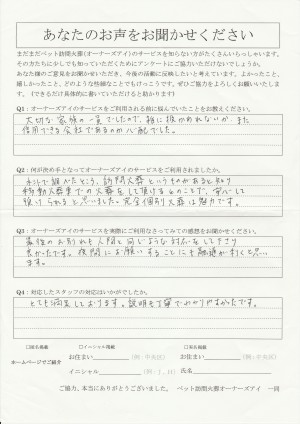 あなたのお声をお聞かせください
まだまだペット訪問火葬(オーナーズアイ)のサービスを知らない方がたくさんいらっしゃいます。
その方たちに少しでも知っていただくためにアンケートにご協力いただけないでしょうか。
あなた様のご意見をお聞かせいただき、今後の活動に反映したいと考えています。よかったこと、
嬉しかったこと、どのような些細なことでもけっこうです、ぜひご協力をよろしくお願いいたします。
(できるだけ具体的に書いていただけると助かります)
Q1:オーナーズアイのサービスをご利用される前に悩んでいたことをお教えください。
大切な家族の一員でしたので、雑に扱かわれないか、また
信用できる会社であるのか心配でした。
Q2:何が決め手となってオーナーズアイのサービスをご利用されましたか。
ネットで調べたところ、訪問火葬というものがあると知り
移動火葬車での火葬をして頂けるとのことで、安心して
預けられると思いました。完全個別火葬は魅力です。
Q3:オーナーズアイのサービスを実際にご利用なさってみての感想をお聞かせください。
最後のお別れも人間と同じような対応をして下さり
良かったです。夜間にお願いすることにも融通がきくと思い
ます。
Q4:対応したスタッフの対応はいかがでしたか。
とても満足しております。説明も丁寧でわかりやすかったです。
□匿名掲載 □イニシャル掲載 □実名掲載
ホームページでご紹介 お住まい (例:中央区) お住まい (例:中央区)
イニシャル (例:T、H) 氏名
ご協力、本当にありがとうございました。 ペット訪問火葬オーナーズアイ 一同